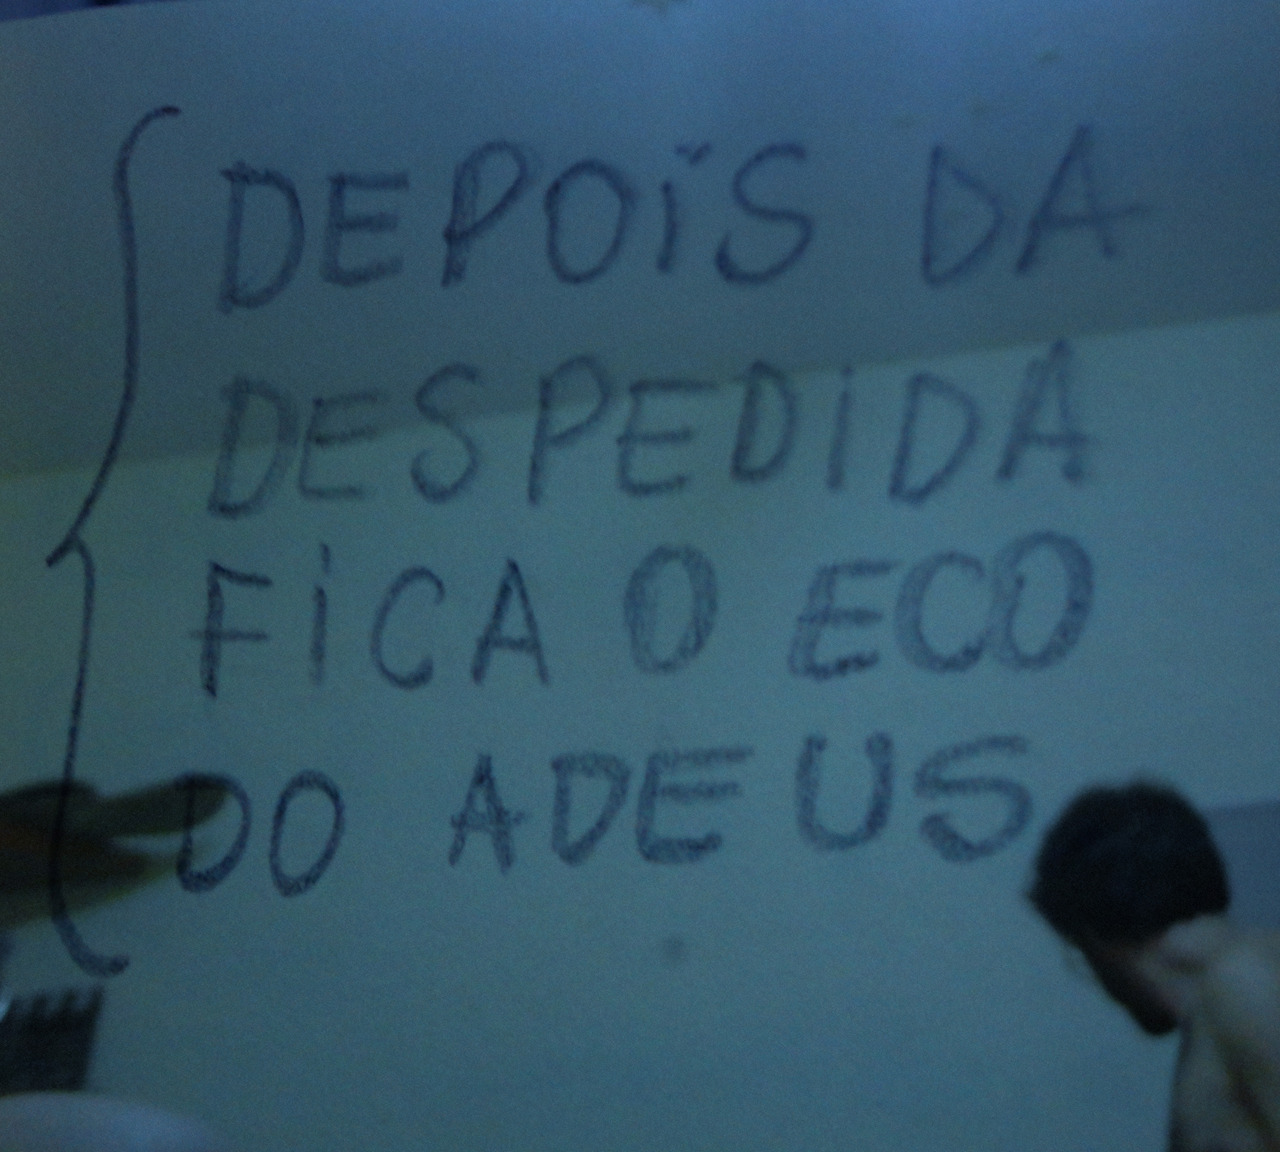 DEPOIS DA
DESPEDIDA
FICA O ECO
DO ADEUS